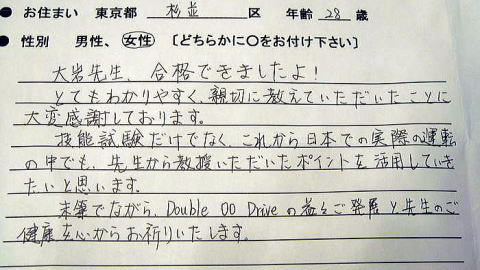 ● お住まい 東京都 杉並 区 年齢 28 歳
● 性別 男性、女性 〔どちらかに○をお付け下さい〕
大岩先生、合格できましたよ！
とてもわかりやすく、親切に教えていただいたことに
大変感謝しております。
技能試験だけでなく、これから日本での実際の運転
の中でも、先生から教授いただいたポイントを活用していき
たいと思います。
末筆でながら、Double OO Driveの益々ご発展と先生のご
健康を心からお祈りいたします。